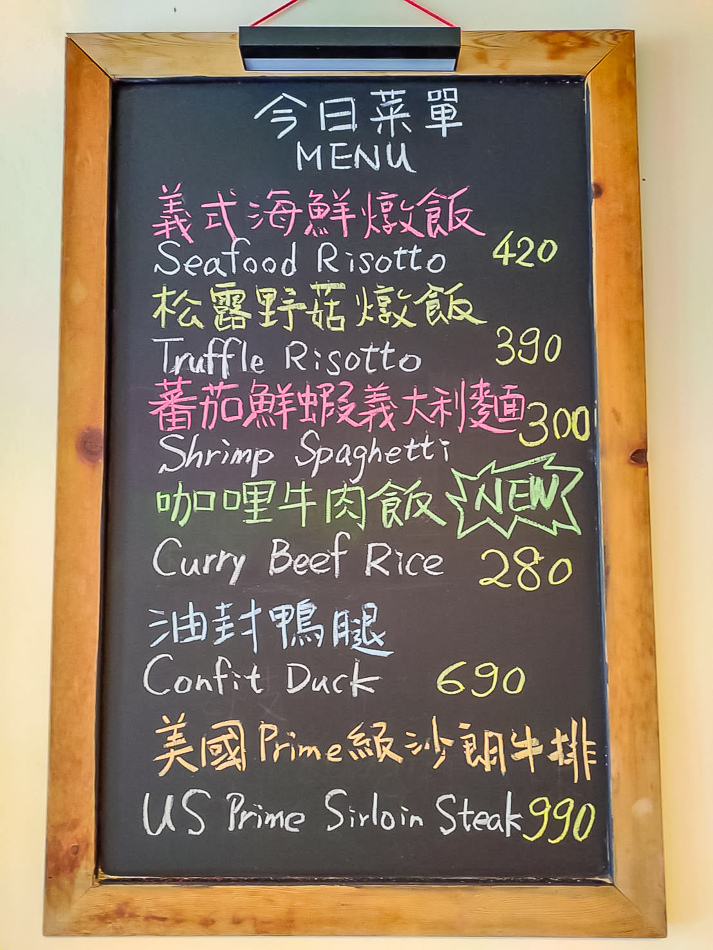 今日菜單
MENU
義式海鮮燉飯
Seafood Risotto 420
松露野菇燉飯
Truffle Risotto 390
蕃茄鮮蝦義大利麵 300
Shrimp Spaghetti
咖哩牛肉飯 NEW
Curry Beef Rice 280
油封鴨腿
Confit Duck 690
美國Prime級沙朗牛排
US Prime Sirloin Steak 990